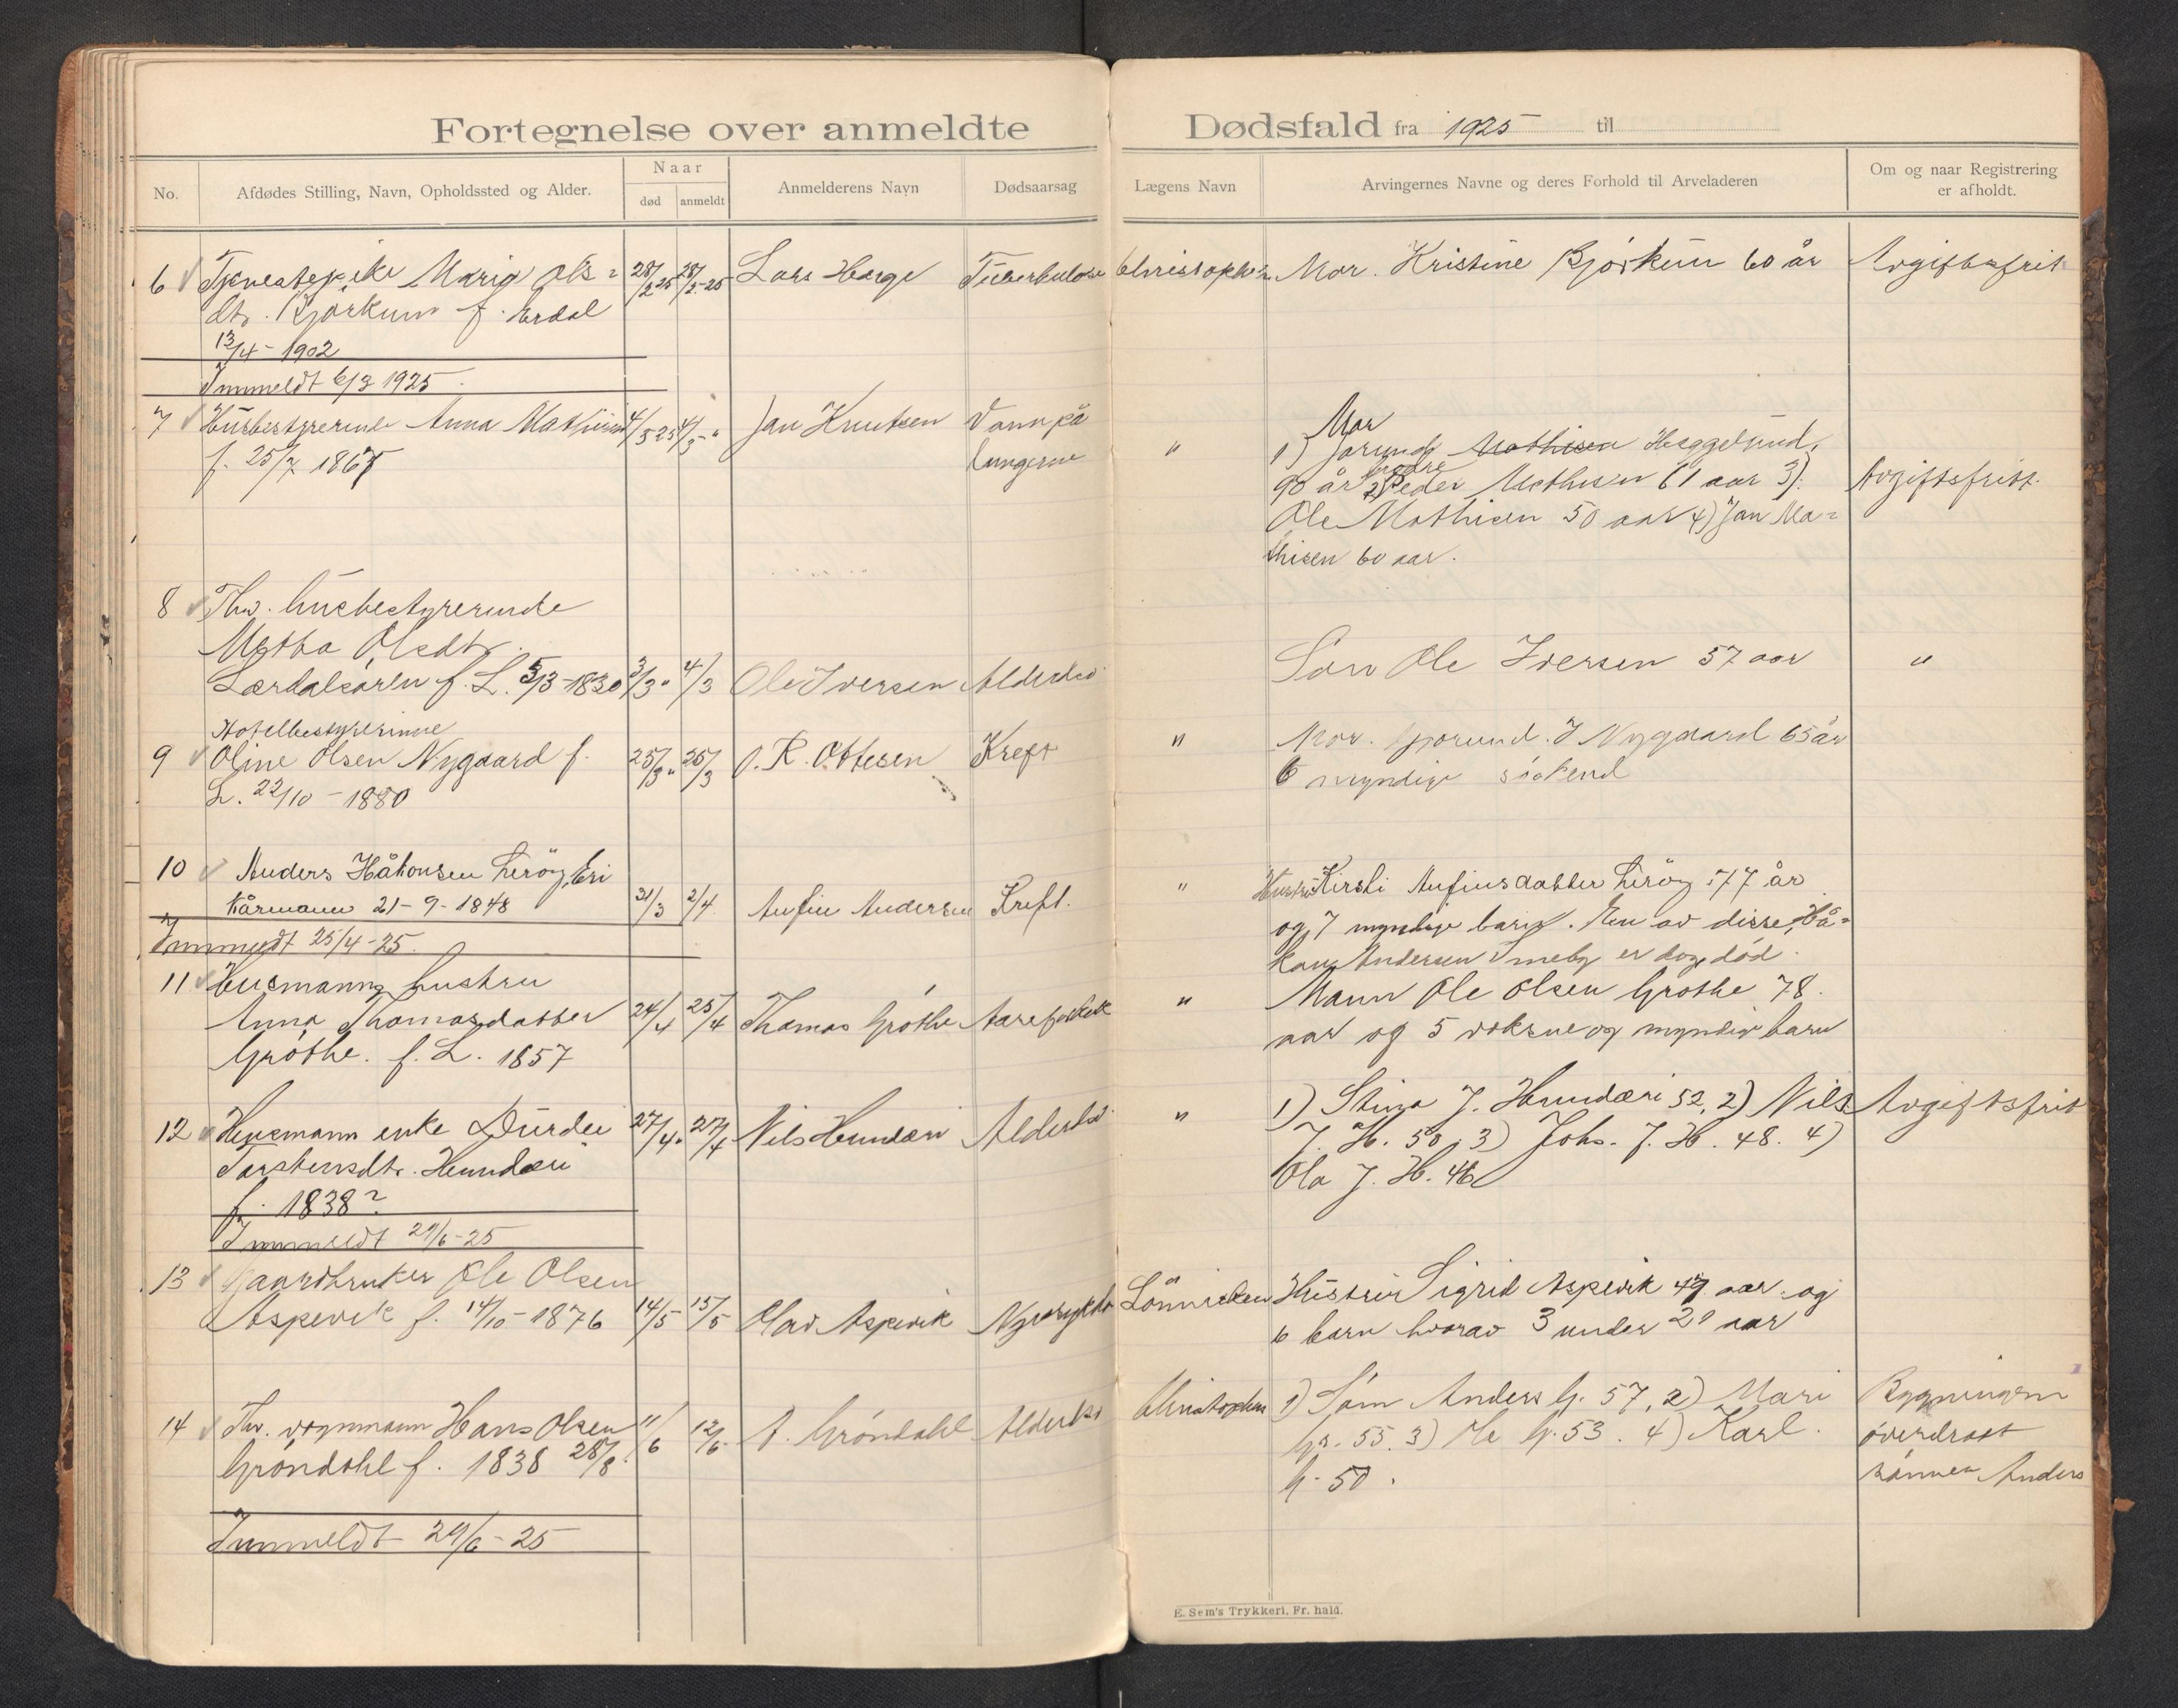 Fortegnelse over anmeldte Dødsfald fra 1925 til
No.
Afdødes Stilling, Navn, Opholdssted og Alder.
Naar
død
anmeldt
Anmelderens Navn
Dødsaarsag
Lægens Navn
Arvingernes Navne og deres Forhold til Arveladeren
Om og naar Registrering
er afholdt.
6 Tjenestepike Maria Ols- 28/2 25 28/2-25 Lars Hauge Tuberkulose Christophersen Mor. Kristine Bjørkum 60 år Avgiftsfrit
dtr. Bjørkum f. Erdal
13/4-1902
Innmeldt 6/3 1925.
7 Husbestyrerinde Anna Mathisen 4/3 25 4/3 " Jan Knutsen Vann på " Mor
f. 25/7 1867 lungerne 1) Jorund Mathisen Hæggelund,
90 år brødre 2) Peder Mathisen 61 aar 3) Avgiftsfrit.
Ole Mathisen 50 aar 4) Jan Ma-
thisen 60 aar.
8 Fhv. husbestyrerinde
Metha Olsdtr.
Lærdalsøren f. L. 5/3-1830 3/3 " 4/3 Ole Iversen Alderdom Søn Ole Iversen 57 aar "
Hotelbestyrerinne
9 Oline Olsen Nygaard f. 25/3 " 26/3 O. R. Ottesen Kreft " Mor. Jorund. J Nygaard 65 år
L. 22/10-1880 6 myndige søskend
10 Anders Håkonsen Lerøy, Eri
Kårmann 21-9-1848 31/3 2/4 Anfin Andersen Kreft. " Hustru Kirsti Anfinsdatter Lerøy 77 år
og 7 myndige barn. En av disse, Hå-
kon Andersen Smeby er dog død.
Innmeldt 25/4-25.
11 Husmanns hustru
Anna Thomasdatter 24/4 25/4 Thomas Grøthe Aareforkalk " Mann Ole Olsen Grøthe 78
Grøthe. f. L. 1857 aar og 5 voksne og myndige barn
12 Husmann enke Durdei 27/4 " 28/4 Nils Hunderi Alderdom " 1) Stina J. Hunderi 52, 2) Nils Avgiftsfrit
Torstensdtr. Hunderi J. H. 50, 3) Johs. J. H. 48. 4)
f. 1838? Ola J. H. 46
Innmeldt 29/6-25
13 Gaardbruker Ole Olsen
Aspevik f. 14/10-1876 14/5 15/5 Olav Aspevik Nyresykdom Lønnicken Hustru Sigrid Aspevik 47 aar og
6 barn hvorav 3 under 21 aar
14 Fhv. vognmann Hans Olsen 11/6 12/6 A. Grøndahl Alderdom Christophersen 1) Søn Anders G. 57, 2) Mari Bygningen
Grøndahl f. 1838 28/8 Gr. 55. 3) Ole G. 53. 4) Karl overdrat
G. 50. sønnen Anders
Innmeldt 29/6-25
E. Sem's Trykkeri, Fr.hald.